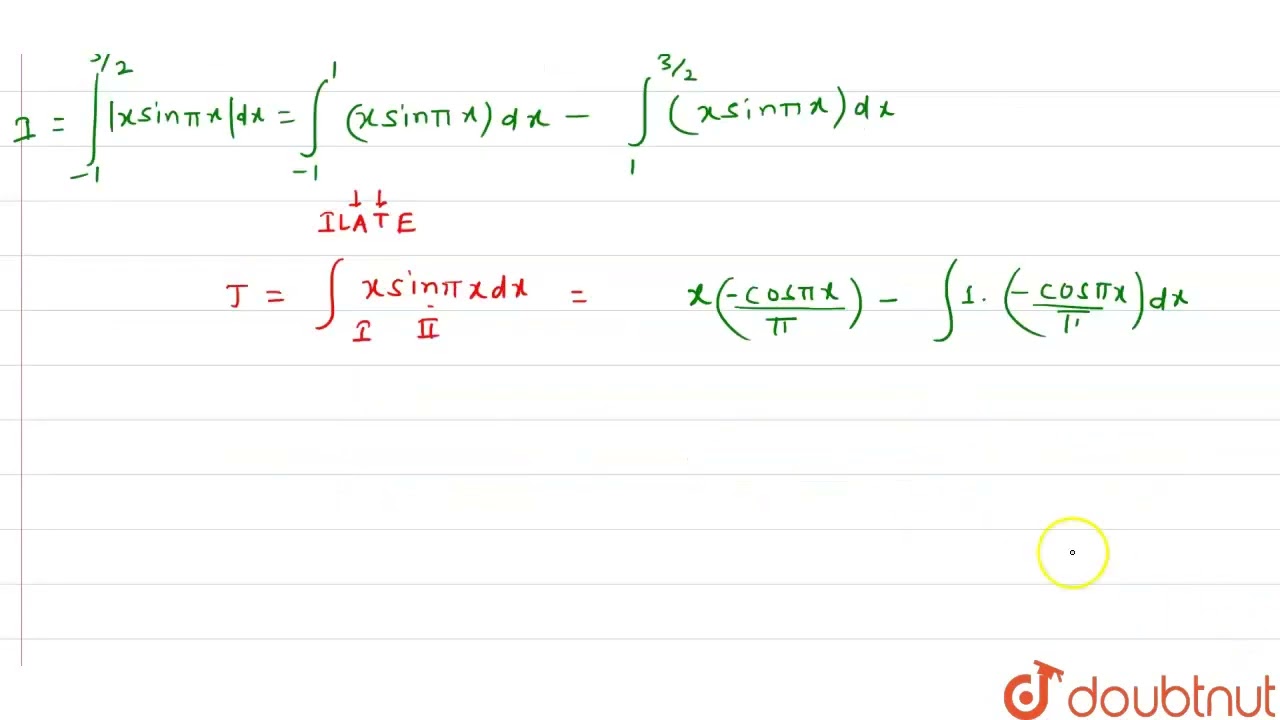 I = ∫_{-1}^{3/2} |x sin πx| dx = ∫_{-1}^{1} (x sin πx) dx − ∫_{1}^{3/2} (x sin πx) dx
↓ ↓
ILATE
J = ∫ x sin πx dx = x(−cos πx/π) − ∫ 1. (−cos πx/π) dx
I II
doubtnut